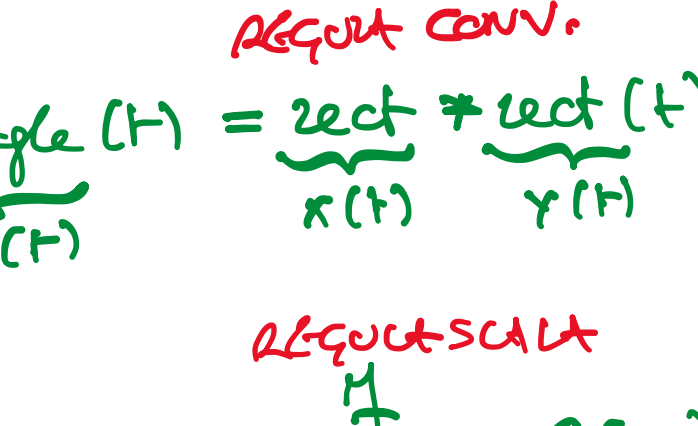 REGOLA CONV.
gle (t) = rect * rect (t)
x(t) y(t)
(t)
REGOLA SCALA